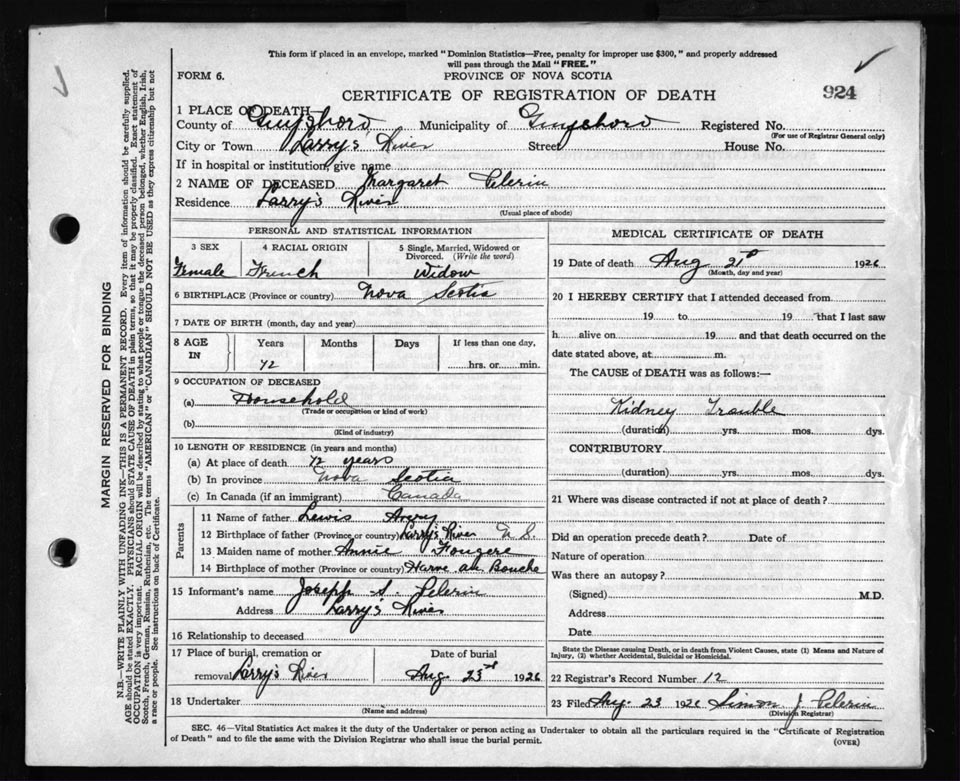 This form if placed in an envelope, marked "Dominion Statistics—Free, penalty for improper use $300," and properly addressed
will pass through the Mail "FREE."
FORM 6.
PROVINCE OF NOVA SCOTIA
CERTIFICATE OF REGISTRATION OF DEATH
924
1 PLACE OF DEATH
County of Guysboro Municipality of Guysboro Registered No.
(For use of Registrar General only)
City or Town Larry's River Street House No.
If in hospital or institution, give name
2 NAME OF DECEASED Margaret Pelerin
Residence Larry's River
(Usual place of abode)
PERSONAL AND STATISTICAL INFORMATION
3 SEX
Female
4 RACIAL ORIGIN
French
5 Single, Married, Widowed or
Divorced. (Write the word)
Widow
6 BIRTHPLACE (Province or country) Nova Scotia
7 DATE OF BIRTH (month, day and year)
8 AGE
IN
Years Months Days If less than one day,
72 hrs. or min.
9 OCCUPATION OF DECEASED
(a) Household
(Trade or occupation or kind of work)
(b)
(Kind of industry)
10 LENGTH OF RESIDENCE (in years and months)
(a) At place of death 72 years
(b) In province Nova Scotia
(c) In Canada (if an immigrant) Canada
Parents
11 Name of father Lewis Avery
12 Birthplace of father (Province or country) Larry's River N S.
13 Maiden name of mother Annie Fougere
14 Birthplace of mother (Province or country) Harve au Bouche
15 Informant's name Joseph S. Pelerin
Address Larry's River
16 Relationship to deceased
17 Place of burial, cremation or Date of burial
removal Larry's River Aug 23rd 1926
18 Undertaker
(Name and address)
MEDICAL CERTIFICATE OF DEATH
19 Date of death Aug 21st 1926
(Month, day and year)
20 I HEREBY CERTIFY that I attended deceased from
19 to 19 that I last saw
h alive on 19 and that death occurred on the
date stated above, at m.
The CAUSE of DEATH was as follows:—
Kidney Trouble
(duration) yrs. mos. dys.
CONTRIBUTORY
(duration) yrs. mos. dys.
21 Where was disease contracted if not at place of death?
Did an operation precede death? Date of
Nature of operation
Was there an autopsy?
(Signed) M.D.
Address
Date
State the Disease causing Death, or in death from Violent Causes, state (1) Means and Nature of
Injury, (2) whether Accidental, Suicidal or Homicidal.
22 Registrar's Record Number 12
23 Filed Aug. 23 1926 Simon J. Pelerin
(Division Registrar)
SEC. 46—Vital Statistics Act makes it the duty of the Undertaker or person acting as Undertaker to obtain all the particulars required in the "Certificate of Registration
of Death" and to file the same with the Division Registrar who shall issue the burial permit.
(OVER)
MARGIN RESERVED FOR BINDING
N.B.—WRITE PLAINLY WITH UNFADING INK—THIS IS A PERMANENT RECORD. Every item of information should be carefully supplied.
AGE should be stated EXACTLY. PHYSICIANS should STATE CAUSE OF DEATH in plain terms, so that it may be properly classified. Exact statement of
OCCUPATION is very important. RACIAL ORIGIN will be described by stating to what people or tongue the deceased person belonged, whether English, Irish,
Scotch, French, German, Russian, Ruthenian, etc. The terms "AMERICAN" or "CANADIAN" SHOULD NOT BE USED as they express citizenship but not
a race or people. See instructions on back of Certificate.